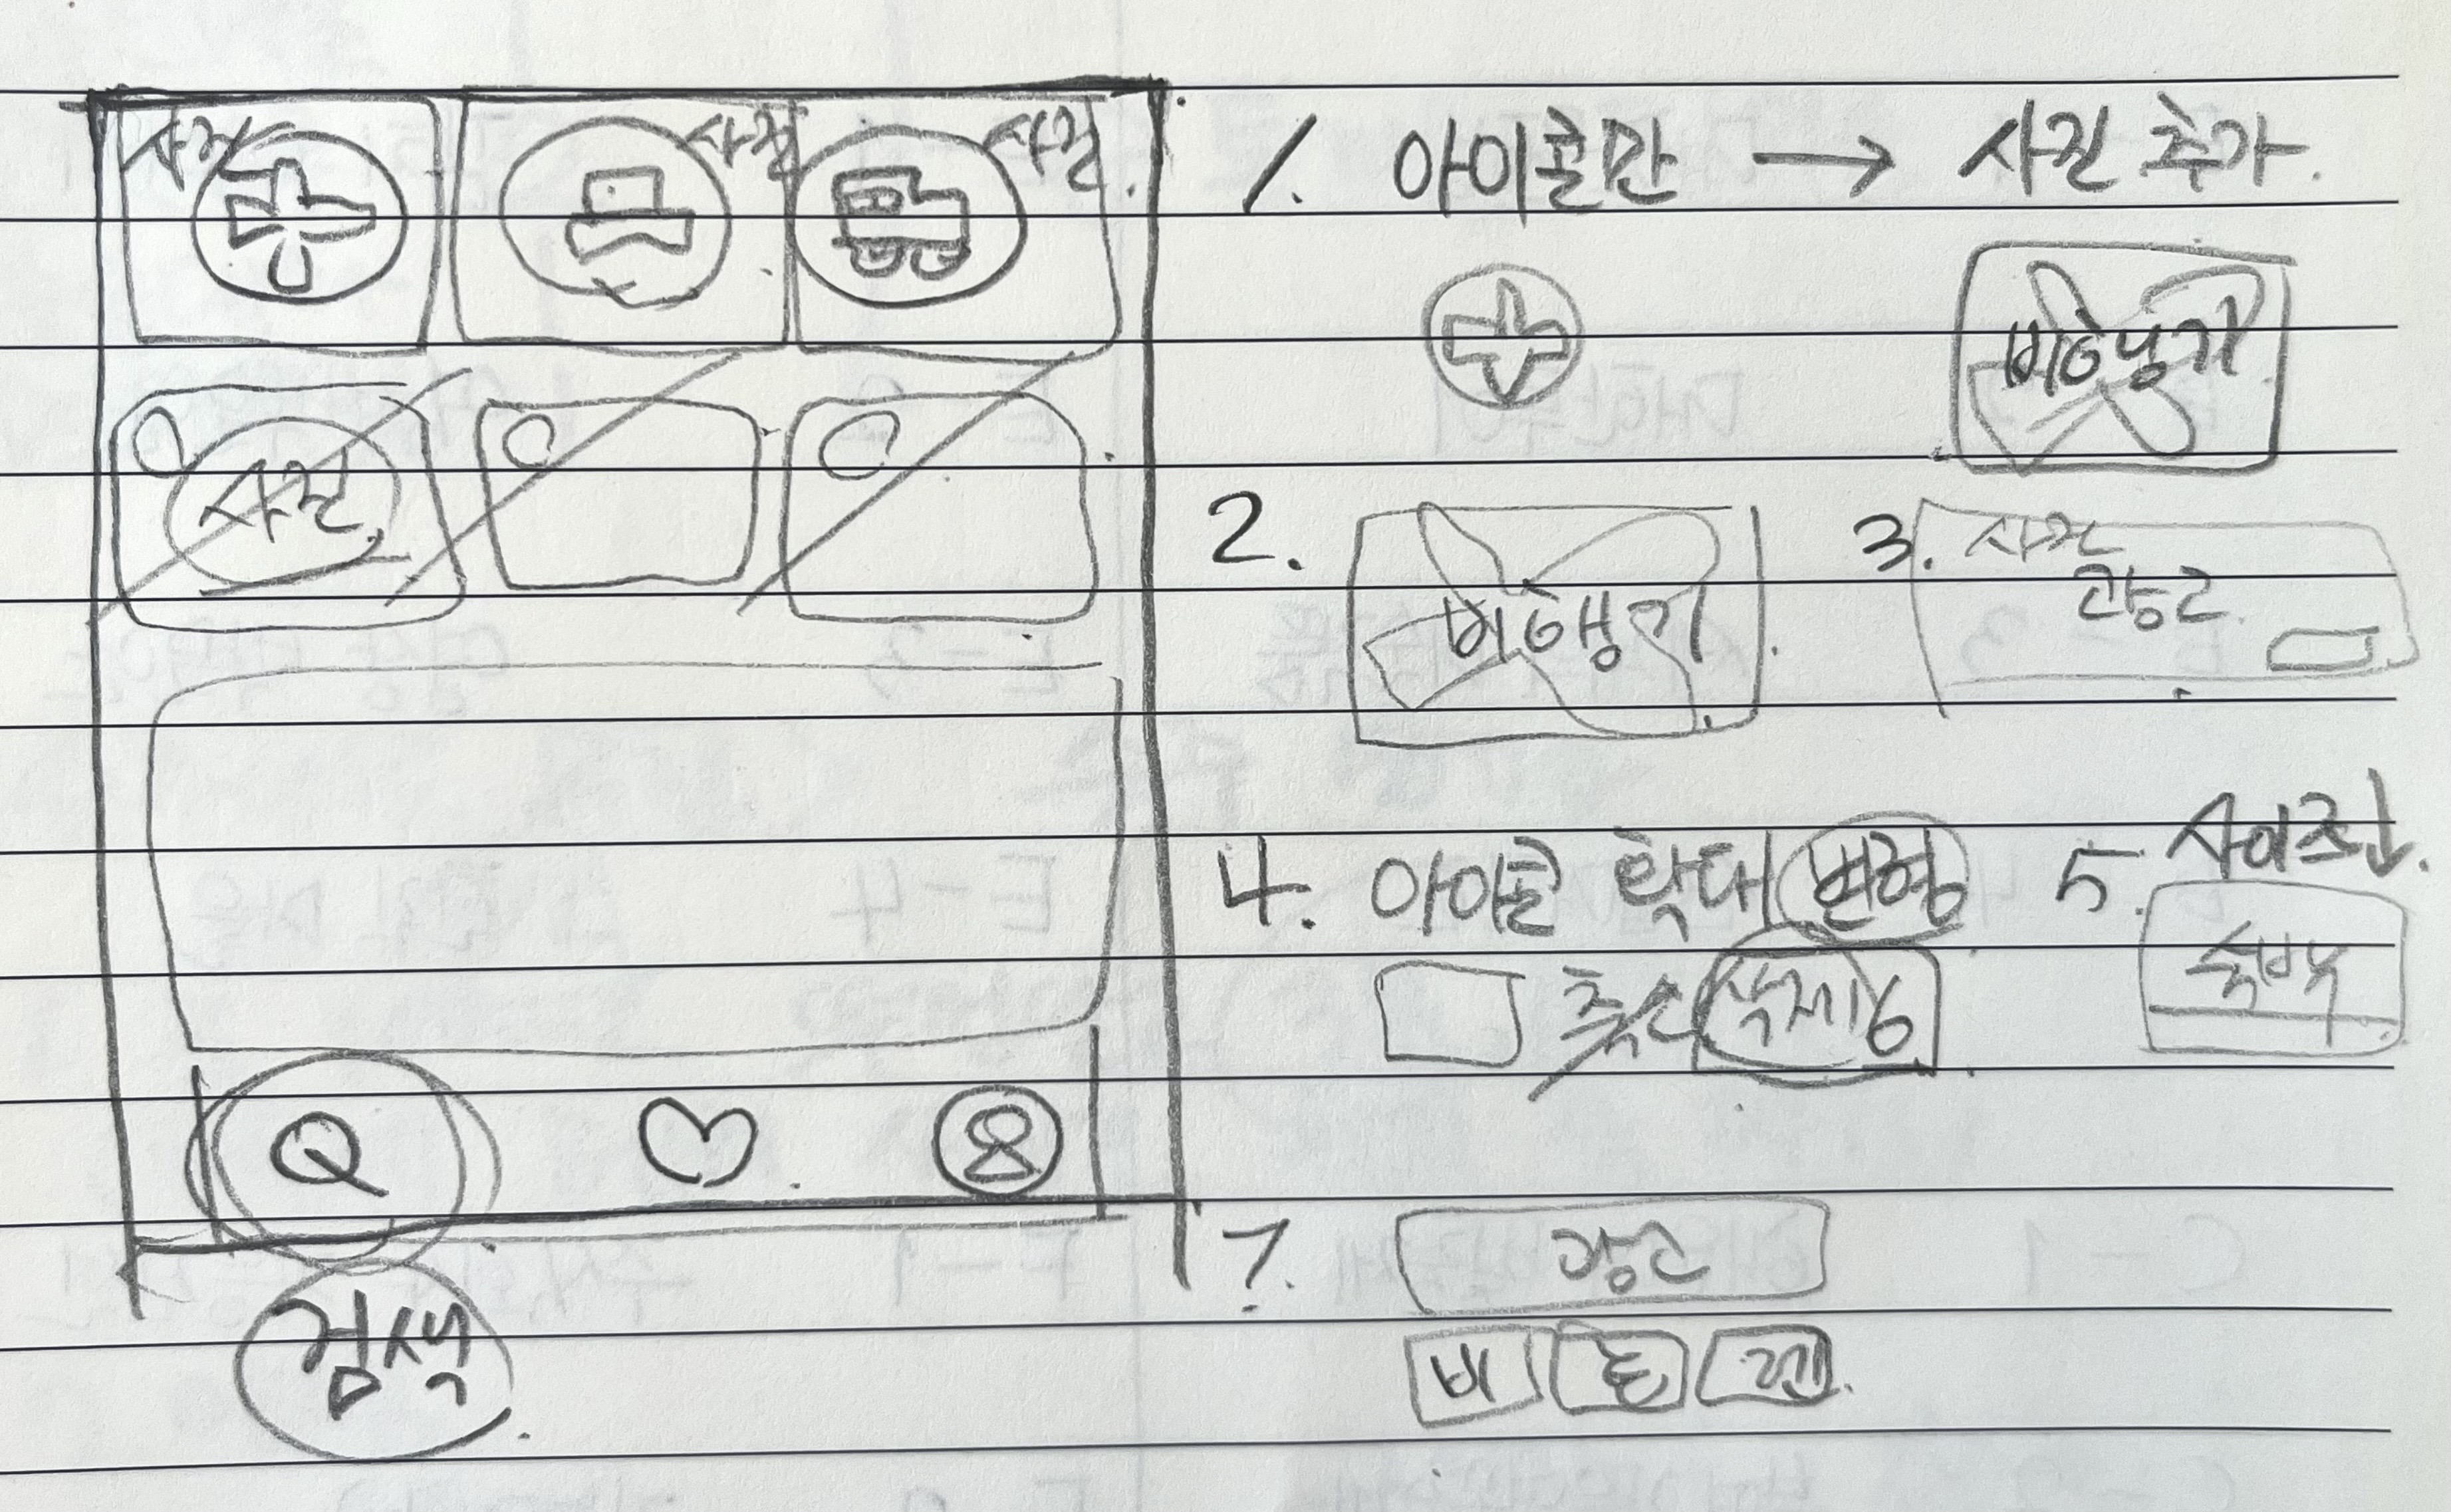 사진 사진 사진
사진
검색
1. 아이콘만 → 사진 추가
비행기
2. 비행기
3. 사진
광고
4. 아이콘 확대 변형
축소 삭제 6
5. 사이즈↓
숙박
7. 광고
비 호 렌